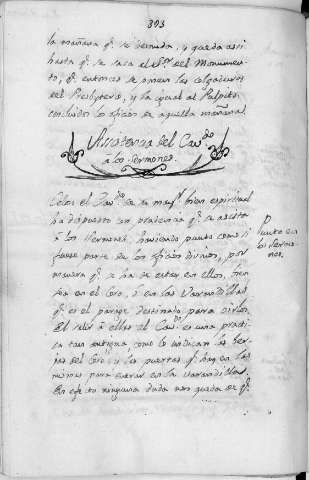 393
la mañana qᵉ. se desnuda, y queda assi
hasta qᵉ. se saca el Sᵒʳ. del Monumen-
to, qᵉ. entonces se ponen las colgaduras
del Presbyterio, y la igual al Pulpito
concluidos los oficios de aquella mañana.
Assistencia del Cavᵈᵒ
a los Sermones.
el Cavᵈᵒ. de su mayʳ. bien espiritual
ha dispuesto con providencia qᵉ. se assista
à los Sermones, haciendo punto como si
fuesse parte de los oficios divinos, por
manera qᵉ. se ha de estar en ellos,
en el Coro, ò en las Varandillas
qᵉ. es el parage destinado para oirlos.
El salir à ellas el Cavᵈᵒ. es una practi-
ca tan antigua, como lo indican las
del Coro, y las puertas qᵉ. hay en las
mismas para entrar en la varandillas.
En efecto ninguna duda nos queda de qᵉ.
Punto en
los Sermo-
nes.